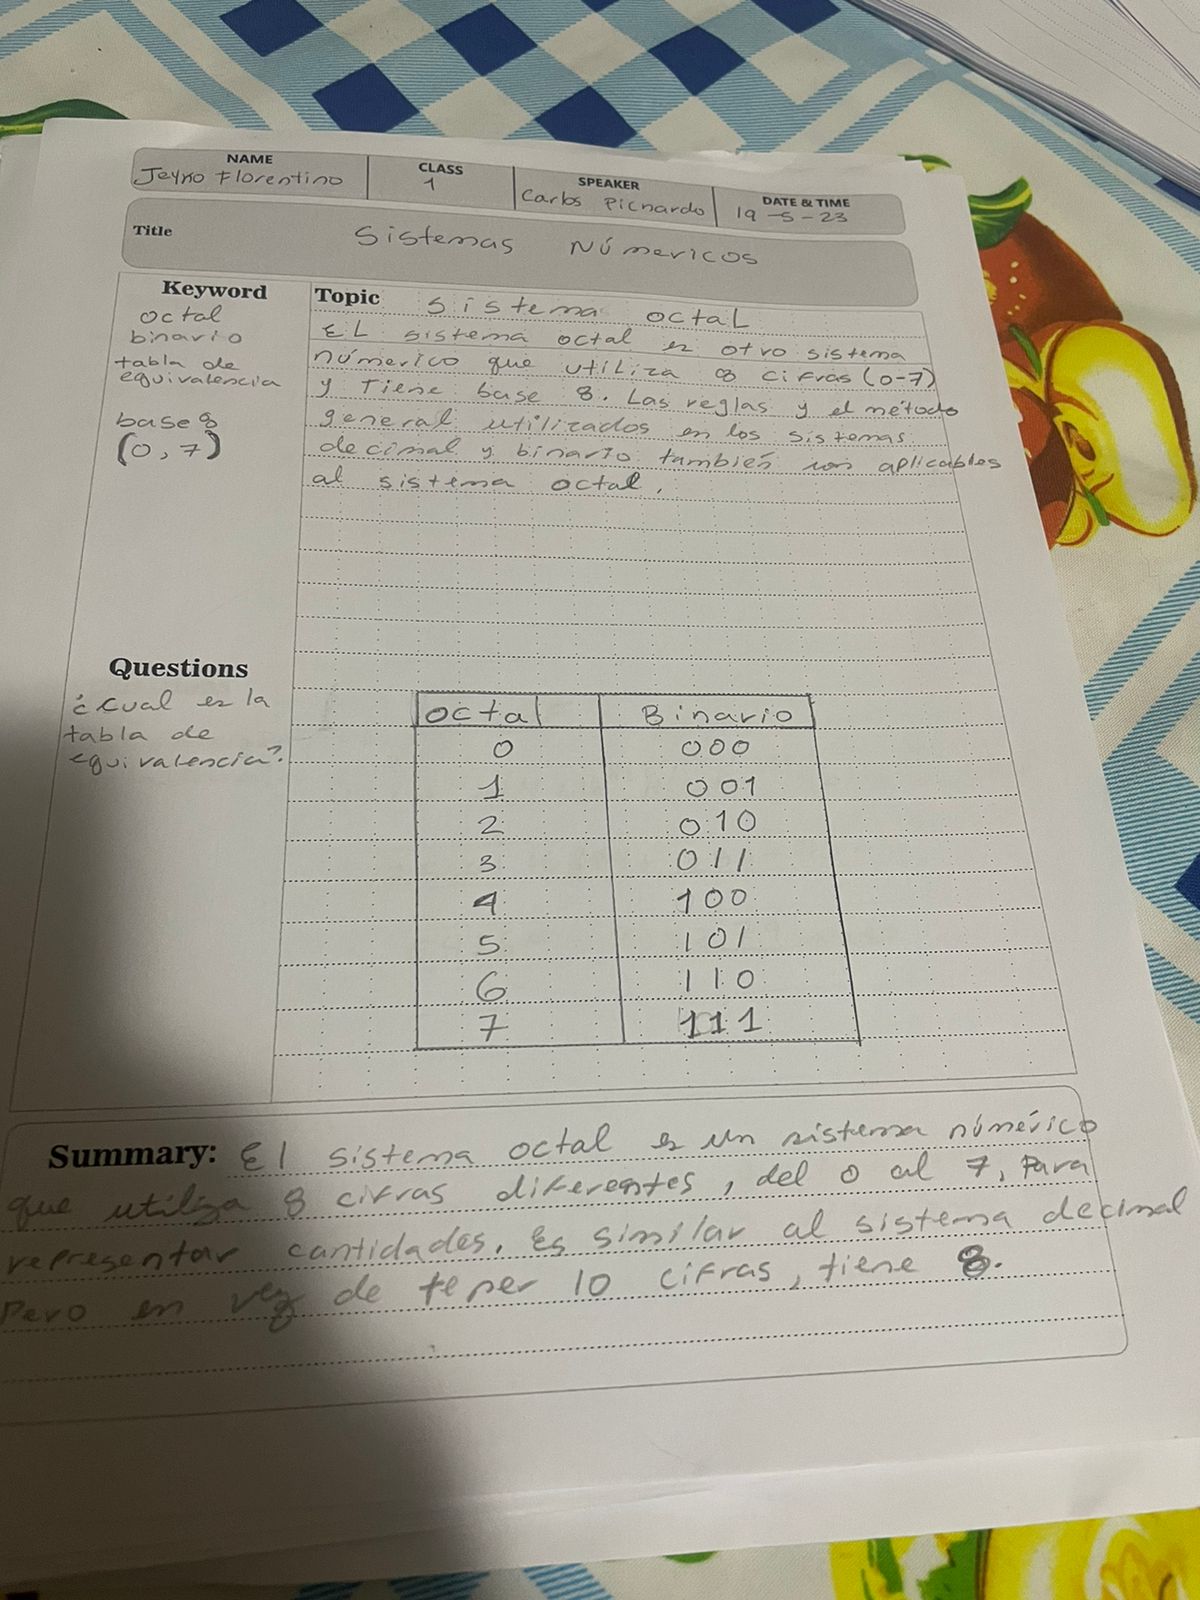 NAME
Jeyko Florentino
CLASS
1
SPEAKER
Carlos Picnardo
DATE & TIME
19-5-23
Title
Sistemas Númericos
Keyword
octal
binario
tabla de
equivalencia
base 8
(0, 7)
Topic Sistema octal
EL sistema octal es otro sistema
númerico que utiliza 8 cifras (0-7)
y Tiene base 8. Las reglas y el método
general utilizados en los sistemas
decimal y binario también son aplicables
al sistema octal.
Questions
¿Cual es la
tabla de
equivalencia?
octal Binario
0 000
1 001
2 010
3 011
4 100
5 101
6 110
7 111
Summary: El sistema octal es un sistema númérico
que utiliza 8 cifras diferentes, del 0 al 7, Para
representar cantidades. Es similar al sistema decimal
Pero en vez de tener 10 cifras, tiene 8.